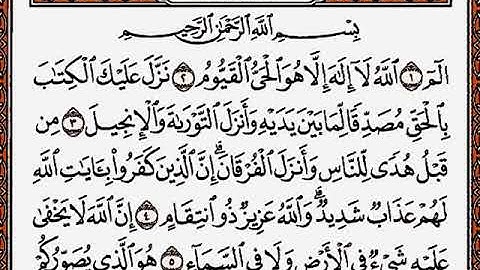 بِسْمِ اللَّهِ الرَّحْمَٰنِ الرَّحِيمِ
الٓمٓ ١ اللَّهُ لَآ إِلَٰهَ إِلَّا هُوَ الْحَيُّ الْقَيُّومُ ٢ نَزَّلَ عَلَيْكَ الْكِتَٰبَ
بِالْحَقِّ مُصَدِّقًا لِّمَا بَيْنَ يَدَيْهِ وَأَنزَلَ التَّوْرَىٰةَ وَالْإِنجِيلَ ٣ مِن
قَبْلُ هُدًى لِّلنَّاسِ وَأَنزَلَ الْفُرْقَانَ ۗ إِنَّ الَّذِينَ كَفَرُوا۟ بِـَٔايَٰتِ اللَّهِ
لَهُمْ عَذَابٌ شَدِيدٌ ۗ وَاللَّهُ عَزِيزٌ ذُو انتِقَامٍ ٤ إِنَّ اللَّهَ لَا يَخْفَىٰ
عَلَيْهِ شَىْءٌ فِى الْأَرْضِ وَلَا فِى السَّمَآءِ ٥ هُوَ الَّذِى يُصَوِّرُكُمْ